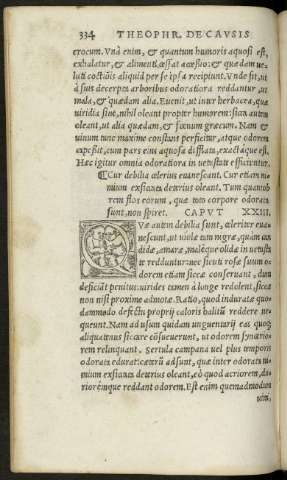 334 THEOPHR. DE CAVSIS
crocum. Vnà enim, & quantum humoris aquosi est,
exhalatur, & alimenti cessat accessio: & quædam ueluti
coctanis aliquid per se ipsa recipiunt. Vnde fit, ut
à suis decerptæ arboribus odoratiora reddantur, ut
mala, & quædam alia. Euenit, ut inter herbacea, quæ
uiridia siue, nihil oleant propter humorem: sicca autem
oleant, ut alia quædam, & fœnum græcum. Nam &
uinum tunc maxime constans perficitur, atque odorem
expedit, cum pars eius aquosa difflata, exactáque est.
Hæc igitur omnia odoratiora in uetustate efficiuntur.
¶ Cur debilia celerius euanescant. Cur etiam nimium
exsiccata deterius oleant. Tum quamobrem
flos eorum, quæ toto corpore odorata
sunt, non spiret. CAPVT XXIII.
QVæ autem debilia sunt, celeriter euanescunt,
ut uiolæ cum nigræ, quam candidæ,
amaræ, maléque olidæ in uetustate
redduntur: nec sicuti rosæ suum odorem
etiam siccæ conseruant, dum
deficiāt penitus: uirides enim à longe redolent, siccæ
non nisi proxime admotæ. Ratio, quod induratæ quodammodo
defectu proprij caloris halitū reddere nequeunt.
Nam ad usum quidam unguentarij eas quoque
aliquatenus siccare cōsueuerunt, ut odorem synceriorem
relinquant. sertula campana uel plus temporis
odorata edurat: cæterū adsunt, quæ inter odorata nimium
exsiccata deterius oleant, eò quod acriorem, deterioremque
reddant odorem. Est enim quemadmodum